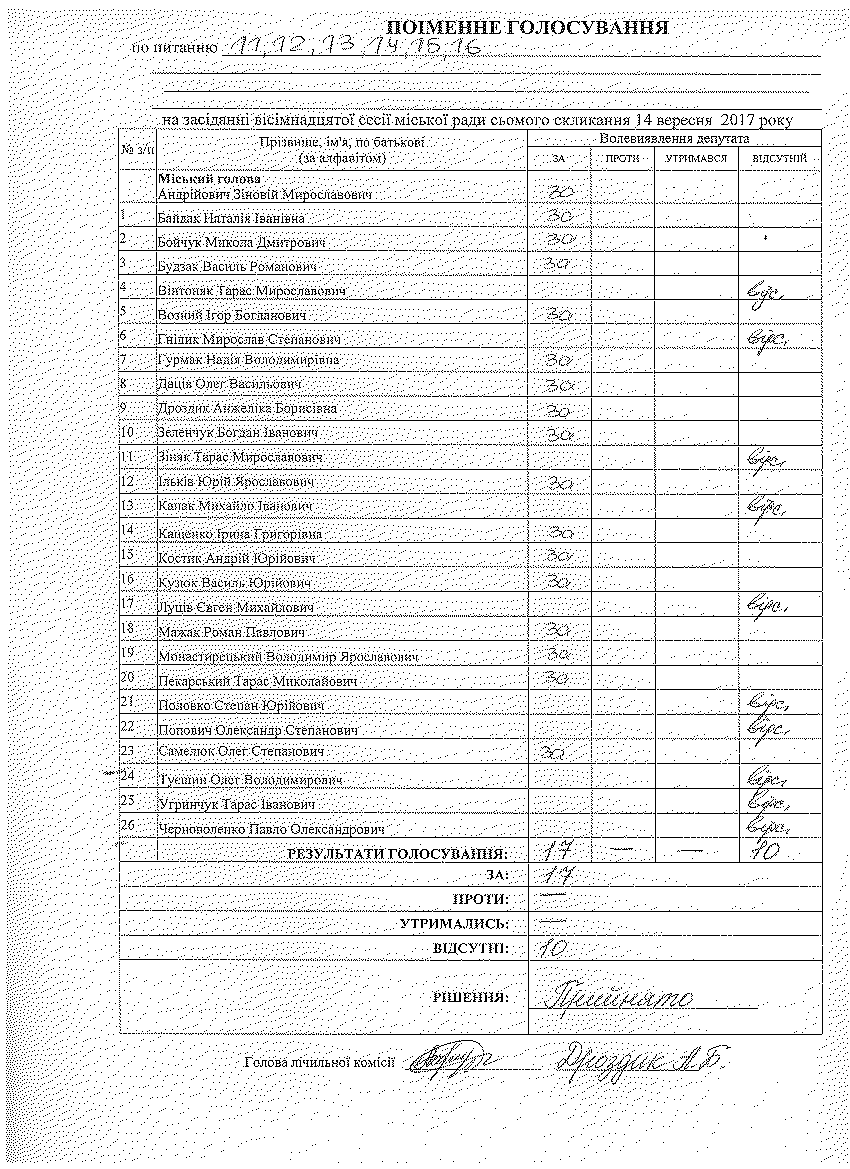 ПОІМЕННЕ ГОЛОСУВАННЯ
по питанню 11,12,13,14,15,16
на засіданні вісімнадцятої сесії міської ради сьомого скликання 14 вересня 2017 року
№ з/п Прізвище, ім'я, по батькові (за алфавітом) Волевиявлення депутата
ЗА ПРОТИ УТРИМАВСЯ ВІДСУТНІЙ
Міський голова
Андрійович Зіновій Мирославович за
1 Байдак Наталія Іванівна за
2 Бойчук Микола Дмитрович за
3 Будзак Василь Романович за
4 Вінтоняк Тарас Мирославович відс.
5 Возний Ігор Богданович за
6 Гнідик Мирослав Степанович відс.
7 Гурмак Надія Володимирівна за
8 Даців Олег Васильович за
9 Дроздик Анжеліка Борисівна за
10 Зеленчук Богдан Іванович за
11 Зіняк Тарас Мирославович відс.
12 Ільків Юрій Ярославович за
13 Качак Михайло Іванович відс.
14 Кащенко Ірина Григорівна за
15 Костик Андрій Юрійович за
16 Кузюк Василь Юрійович за
17 Луців Євген Михайлович відс.
18 Мажак Роман Павлович за
19 Монастирецький Володимир Ярославович за
20 Пекарський Тарас Миколайович за
21 Половко Степан Юрійович відс.
22 Попович Олександр Степанович відс.
23 Самелюк Олег Степанович за
24 Олег Володимирович відс.
25 Угринчук Тарас Іванович відс.
26 Черноволенко Павло Олександрович відс.
РЕЗУЛЬТАТИ ГОЛОСУВАННЯ: 17 — — 10
ЗА: 17
ПРОТИ: —
УТРИМАЛИСЬ: —
ВІДСУТНІ: 10
РІШЕННЯ: Прийнято
Голова лічильної комісії Дроздик А.Б.